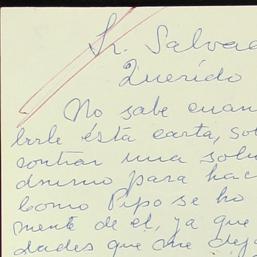 Sr. Salvad
Querido
No sabe cuan
birle ésta carta, sob
contrar una solu
ánimo para hac
Como Pipo se ho
mente de el, ya que
dades que me dej